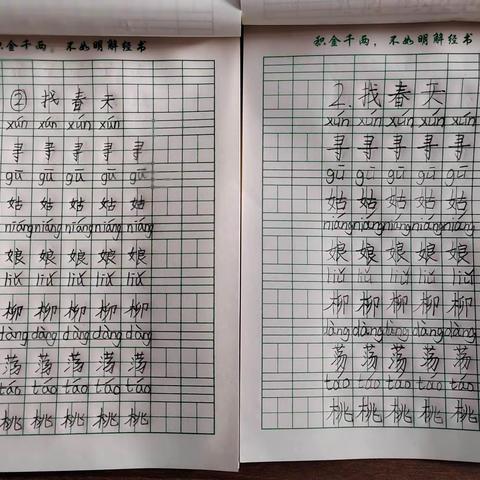 积金千两，不如明解经书
② 找春天
xún xún xún xún
寻 寻 寻 寻 寻
gū gū gū gū gū
姑 姑 姑 姑 姑
niáng niáng niáng niáng niáng
娘 娘 娘 娘 娘
liǔ liǔ liǔ liǔ liǔ
柳 柳 柳 柳 柳
dàng dàng dàng dàng dàng
荡 荡 荡 荡 荡
táo táo táo táo táo
桃 桃 桃 桃 桃
积金千两，不如明解经书
2. 找春天
xún xún xún xún xún
寻 寻 寻 寻 寻
gū gū gū gū gū
姑 姑 姑 姑 姑
niáng niáng niáng niáng niáng
娘 娘 娘 娘 娘
liǔ liǔ liǔ liǔ liǔ
柳 柳 柳 柳 柳
dàng dàng dàng dàng dàng
荡 荡 荡 荡 荡
táo táo táo táo táo
桃 桃 桃 桃 桃